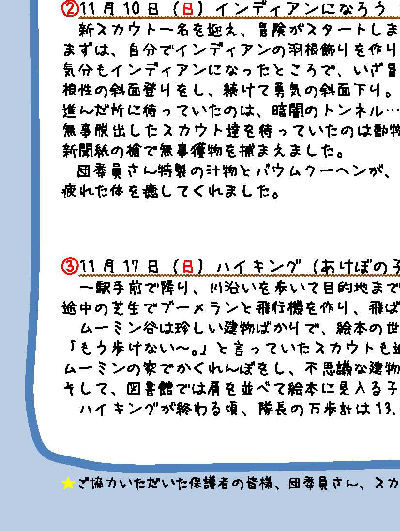 ②11月10日(日)インディアンになろう
新スカウト一名を迎え、冒険がスタートしま
まずは、自分でインディアンの羽根飾りを作り
気分もインディアンになったところで、いざ冒
根性の斜面登りをし、続けて勇気の斜面下り。
進んだ所に待っていたのは、暗闇のトンネル…
無事脱出したスカウト達を待っていたのは動物
新聞紙の槍で無事獲物を捕まえました。
団委員さん特製の汁物とバウムクーヘンが、
疲れた体を癒してくれました。
③11月17日(日)ハイキング(あけぼの子
一駅手前で降り、川沿いを歩いて目的地まで
途中の芝生でブーメランと飛行機を作り、飛ば
ムーミン谷は珍しい建物ばかりで、絵本の世
「もう歩けない〜。」と言っていたスカウトも
ムーミンの家でかくれんぼをし、不思議な建物
そして、図書館では肩を並べて絵本に見入る子
ハイキングが終わる頃、隊長の万歩計は13,
★ご協力いただいた保護者の皆様、団委員さん、スカ